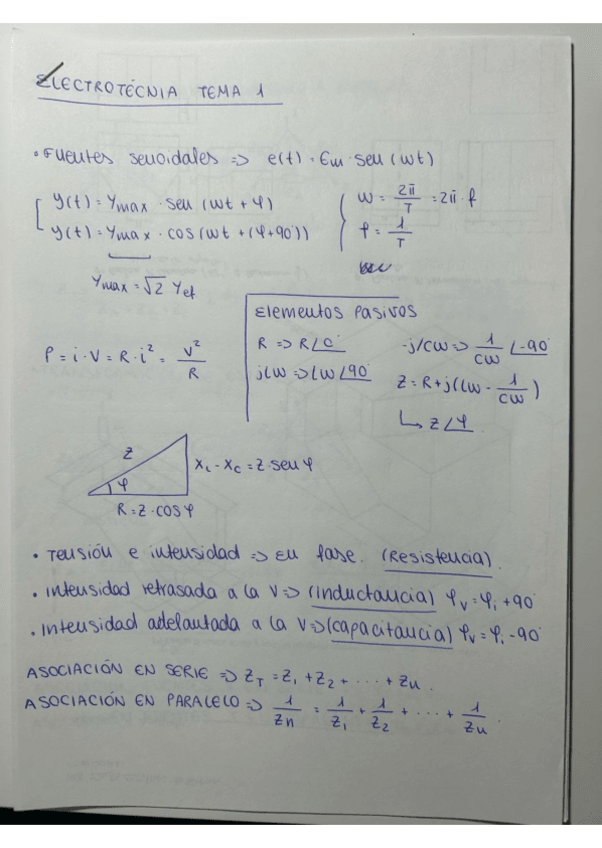 ELECTROTÉCNIA TEMA 1
• Fuentes senoidales => e(t) = Em · sen (wt)
y(t) = Ymax · sen (wt + φ)
y(t) = Ymax · cos (wt + (φ + 90°))
Ymax = √2 Yef
w = 2π/T = 2π · f
f = 1/T
P = i · V = R · i² = V²/R
Elementos Pasivos
R => R∠0°
jLw => Lw∠90°
-j/cw => 1/cw ∠-90°
Z = R + j(Lw - 1/cw)
↳ Z∠φ
Z
φ
XL - XC = Z · sen φ
R = Z · cos φ
• Tensión e intensidad => En fase. (Resistencia).
• Intensidad retrasada a la V => (inductancia) φv = φi + 90°
• Intensidad adelantada a la V => (capacitancia) φv = φi - 90°
ASOCIACIÓN EN SERIE => ZT = Z1 + Z2 + ··· + Zn.
ASOCIACIÓN EN PARALELO => 1/Zn = 1/Z1 + 1/Z2 + ··· + 1/Zn